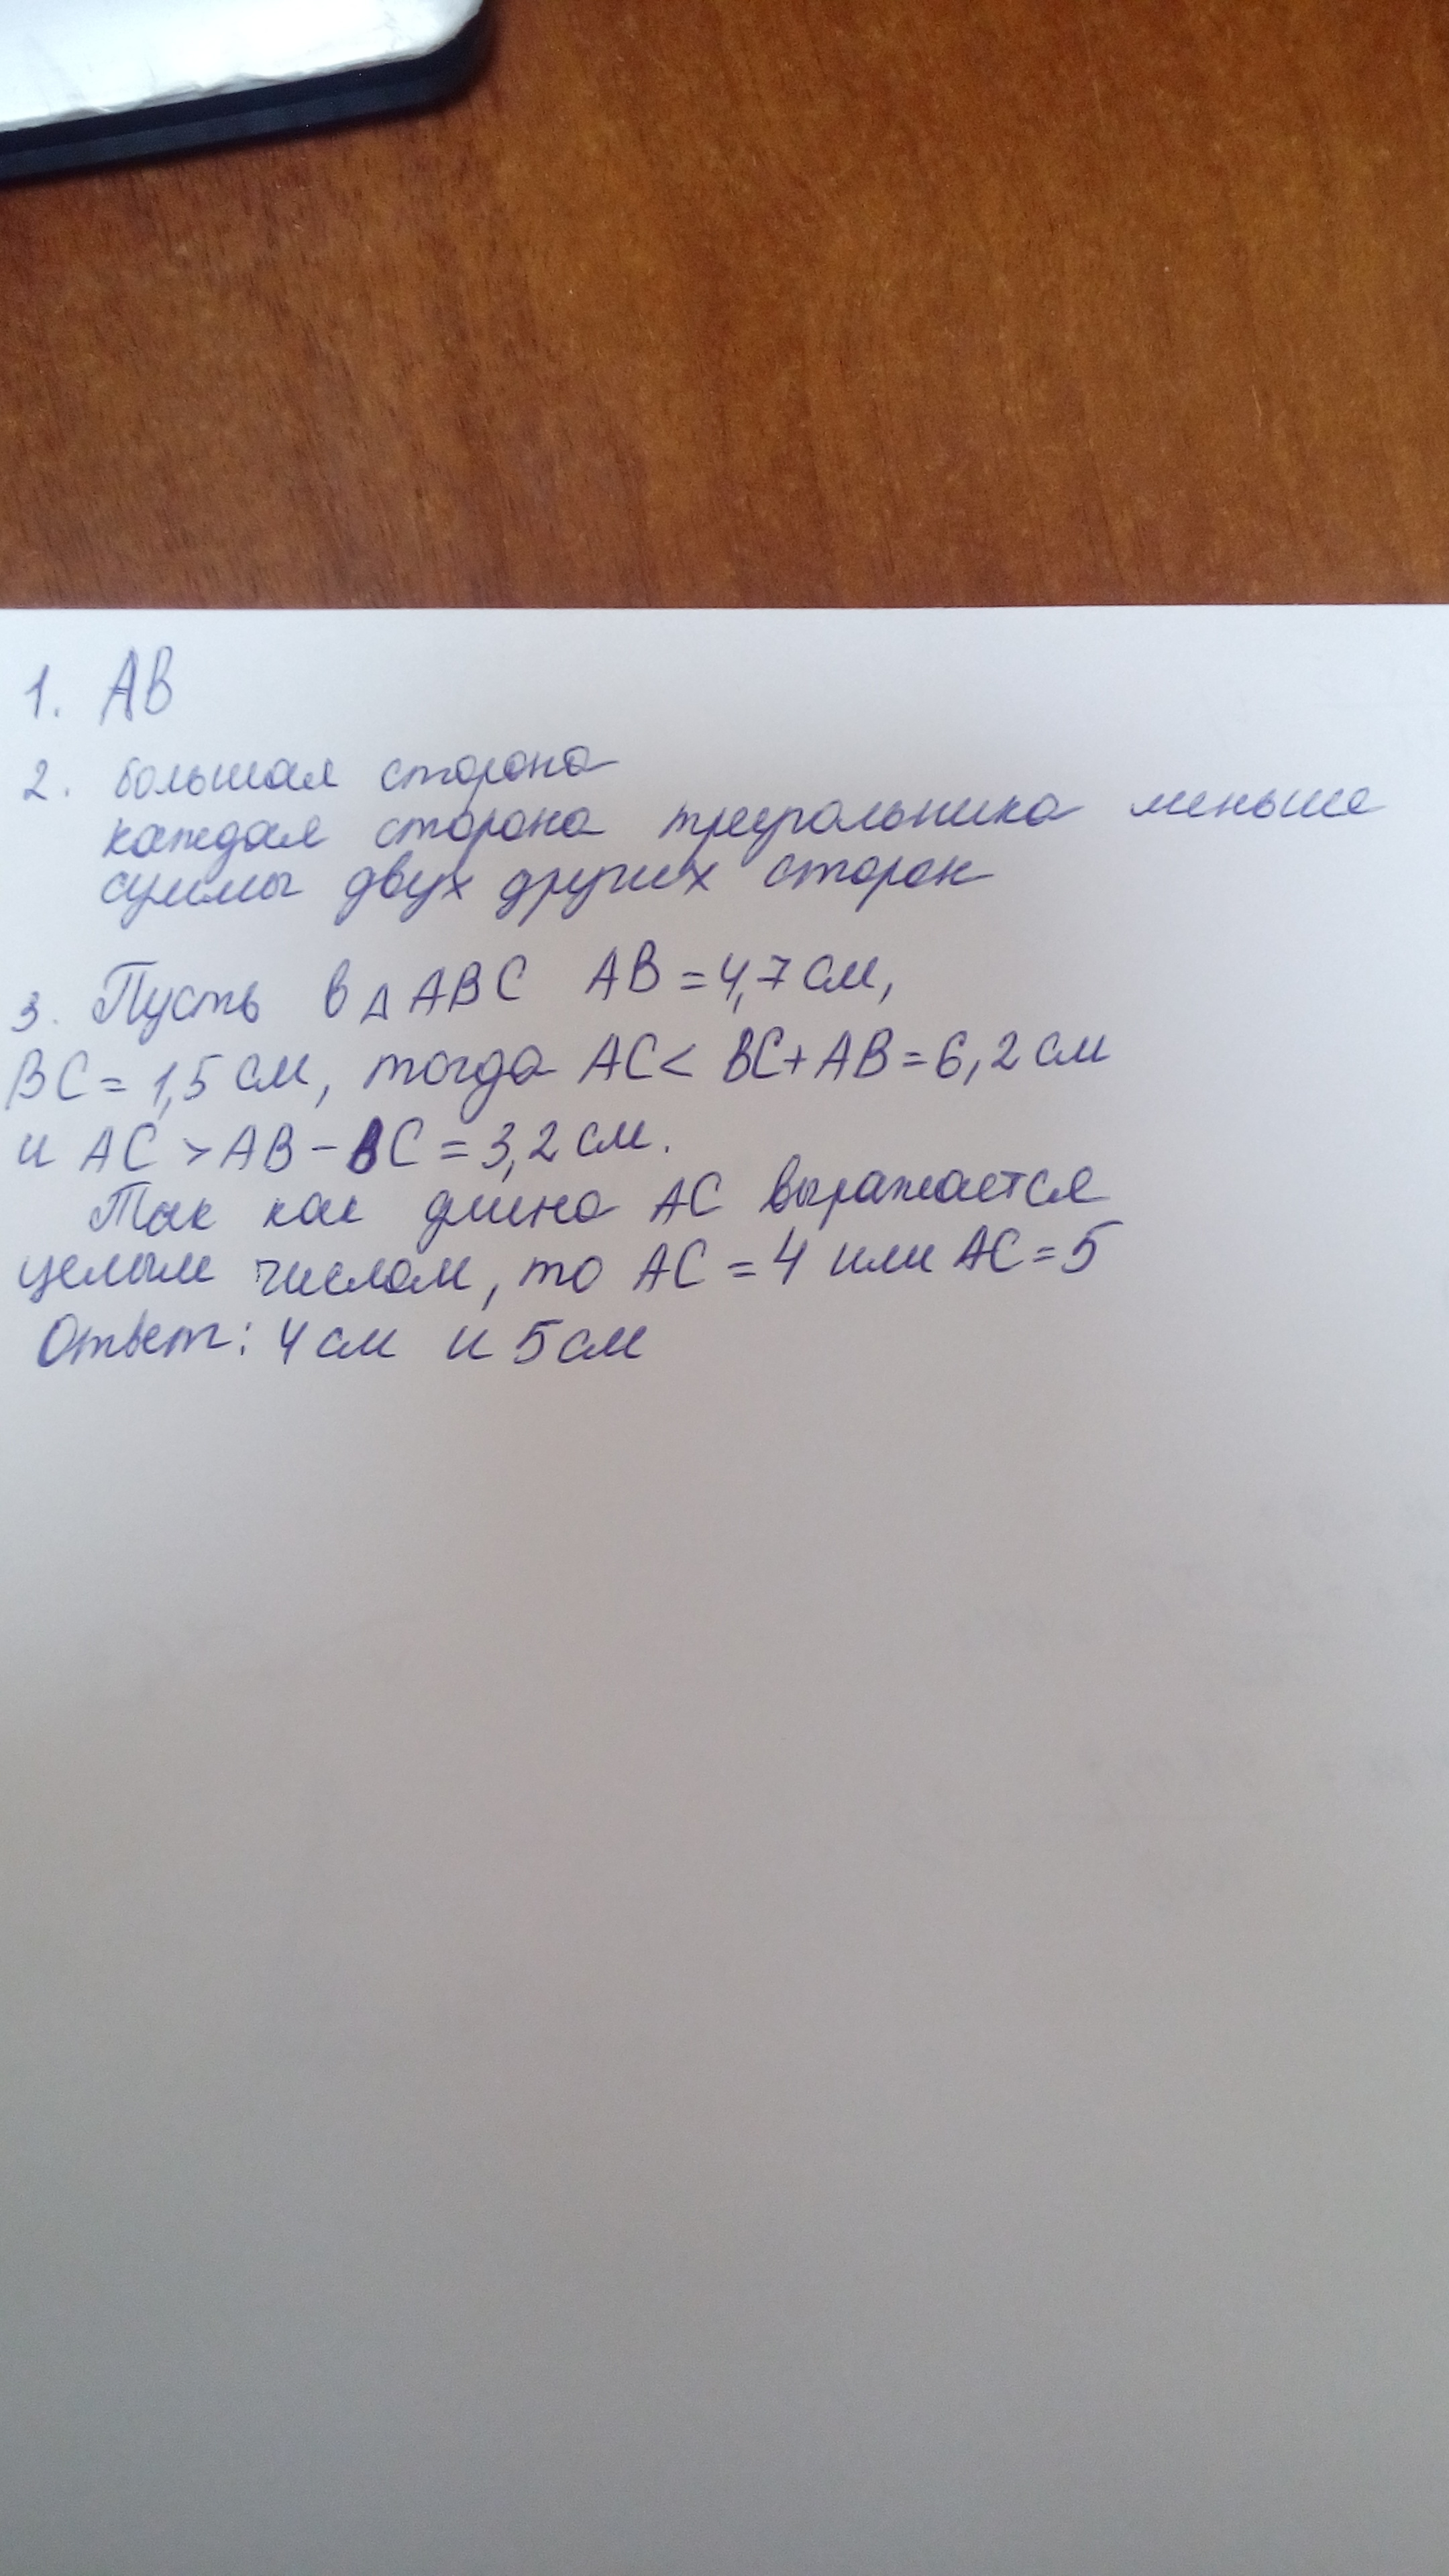 1. АВ
2. большая сторона
каждая сторона треугольника меньше
суммы двух других сторон
3. Пусть в △ АВС АВ = 4,7 см,
ВС = 1,5 см, тогда АС < ВС + АВ = 6,2 см
и АС > АВ – ВС = 3,2 см.
Так как длина АС выражается
целым числом, то АС = 4 или АС = 5
Ответ: 4 см и 5 см